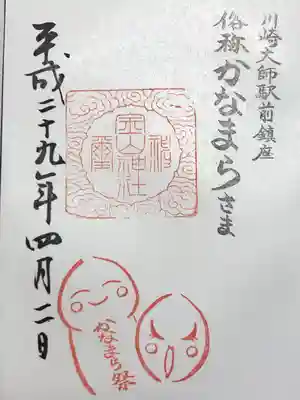 川崎大師駅前鎮座
俗称かなまらさま
平成二十九年四月二日
かなまら祭